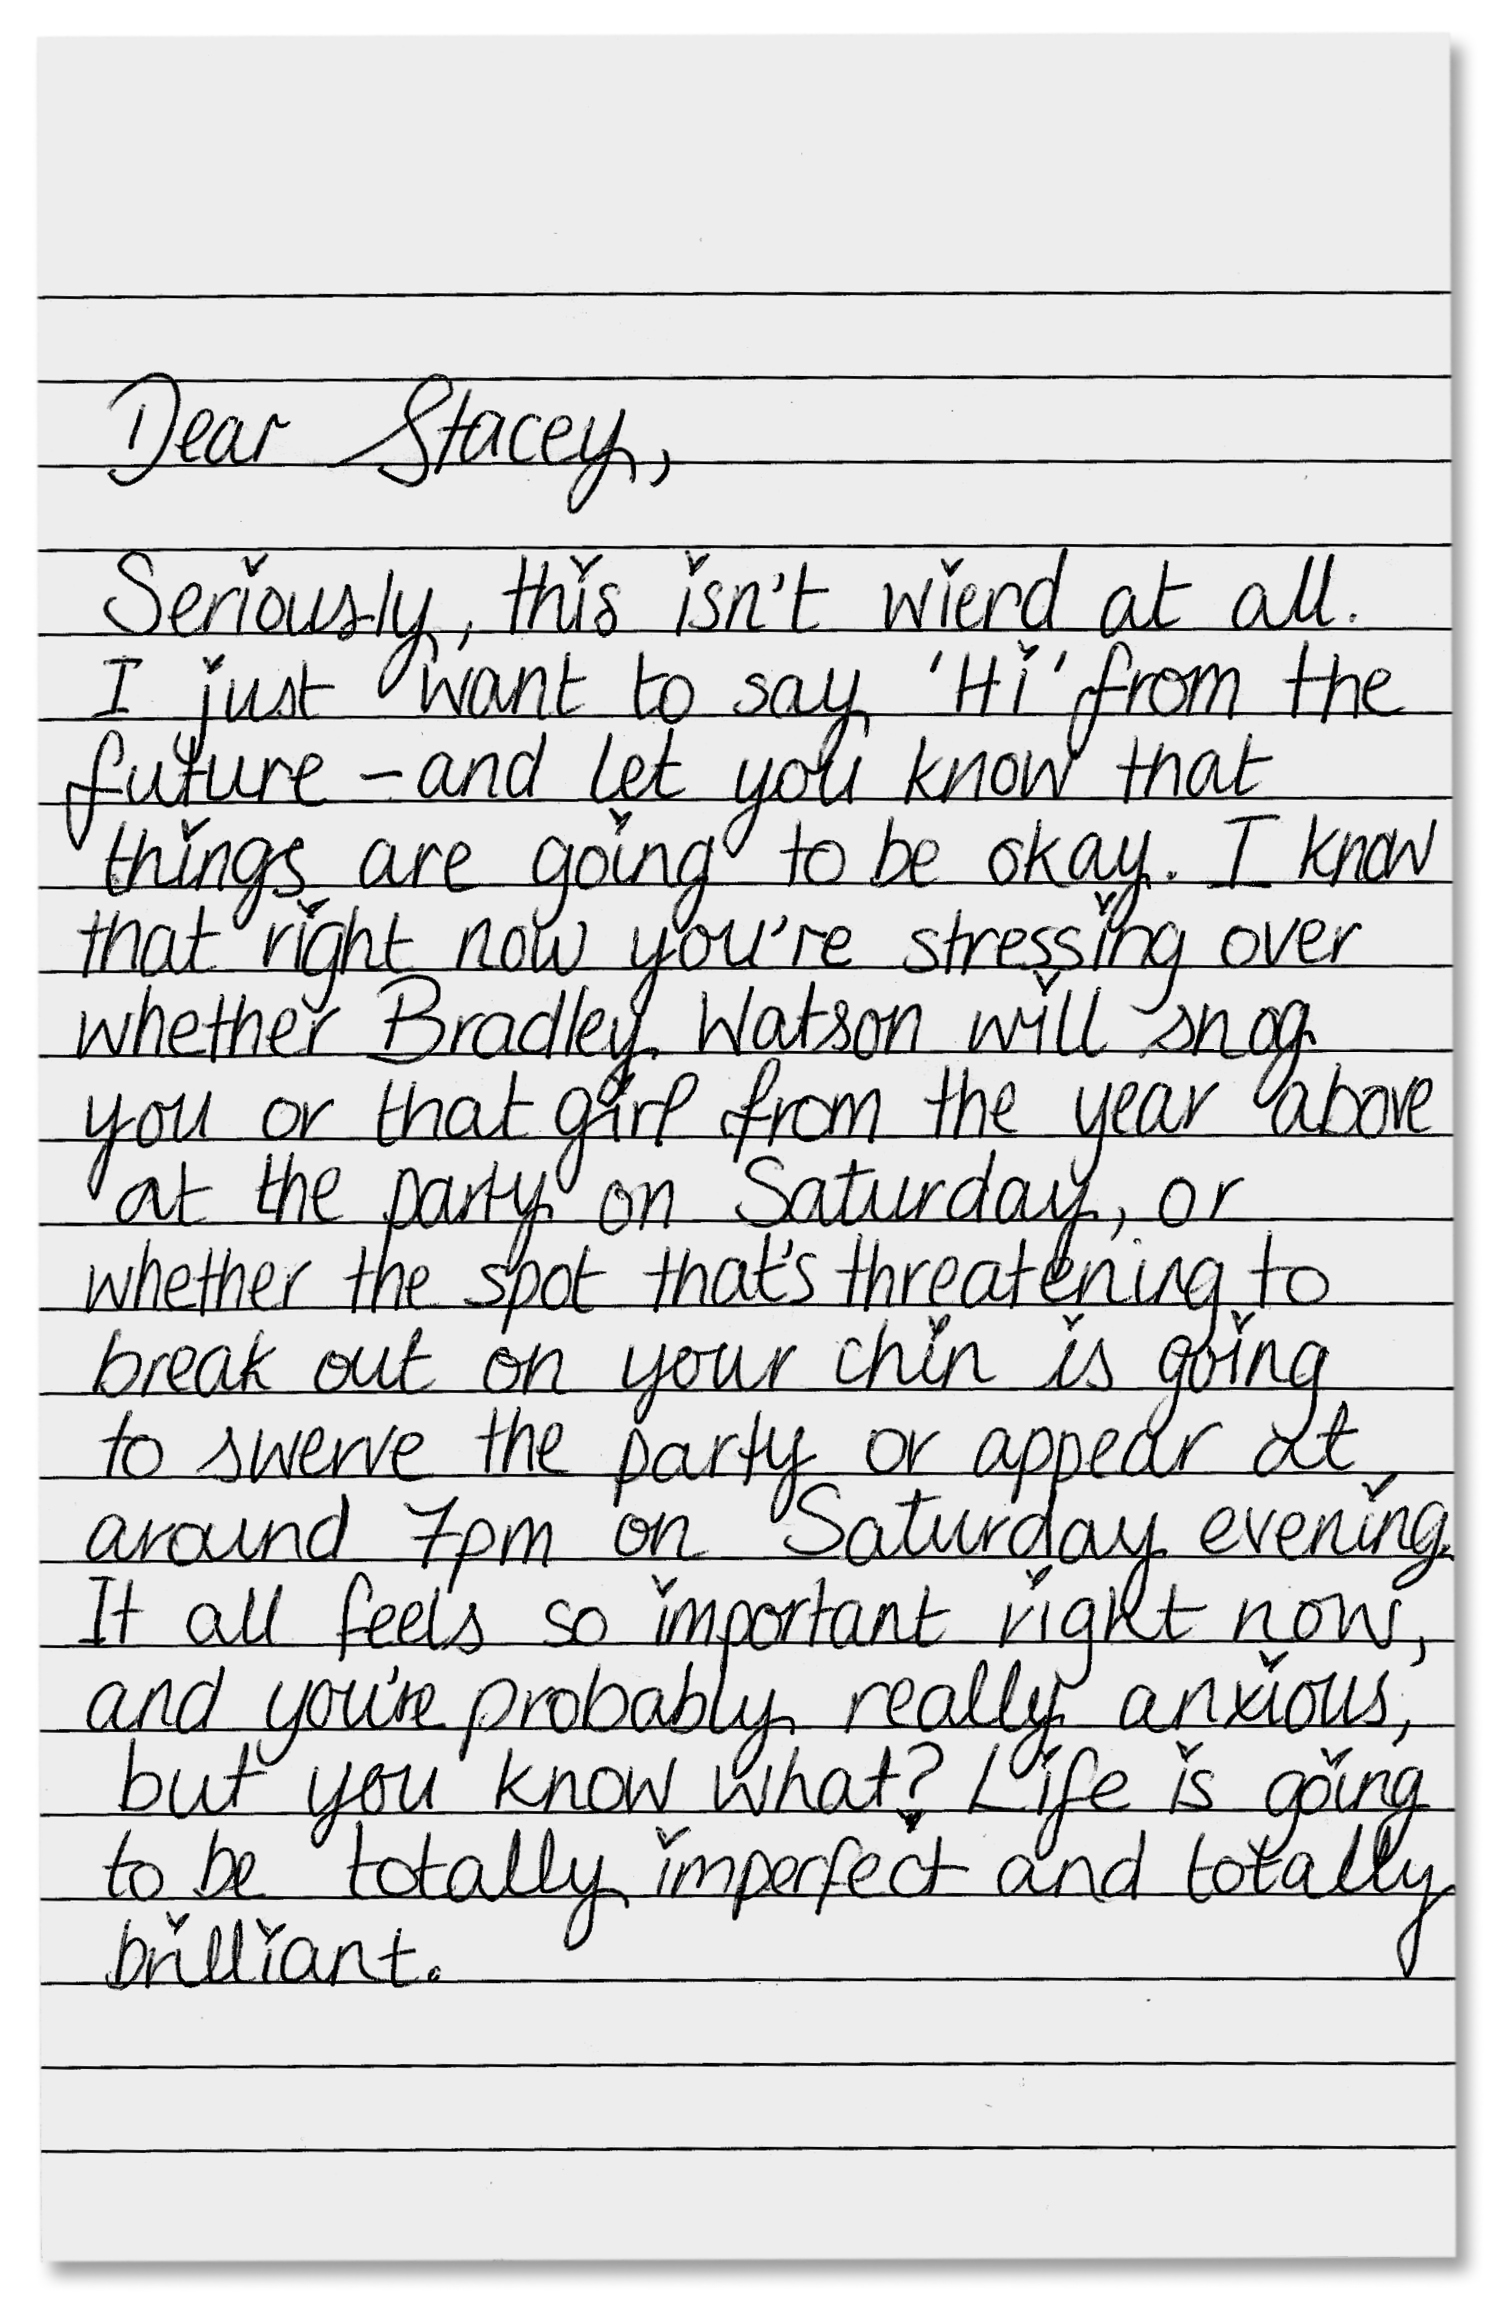 Dear Stacey,
Seriously, this isn't wierd at all.
I just want to say 'Hi' from the
future – and let you know that
things are going to be okay. I know
that right now you're stressing over
whether Bradley Watson will snog
you or that girl from the year above
at the party on Saturday, or
whether the spot that's threatening to
break out on your chin is going
to swerve the party or appear at
around 7pm on Saturday evening.
It all feels so important right now,
and you're probably really anxious,
but you know what? Life is going
to be totally imperfect and totally
brilliant.